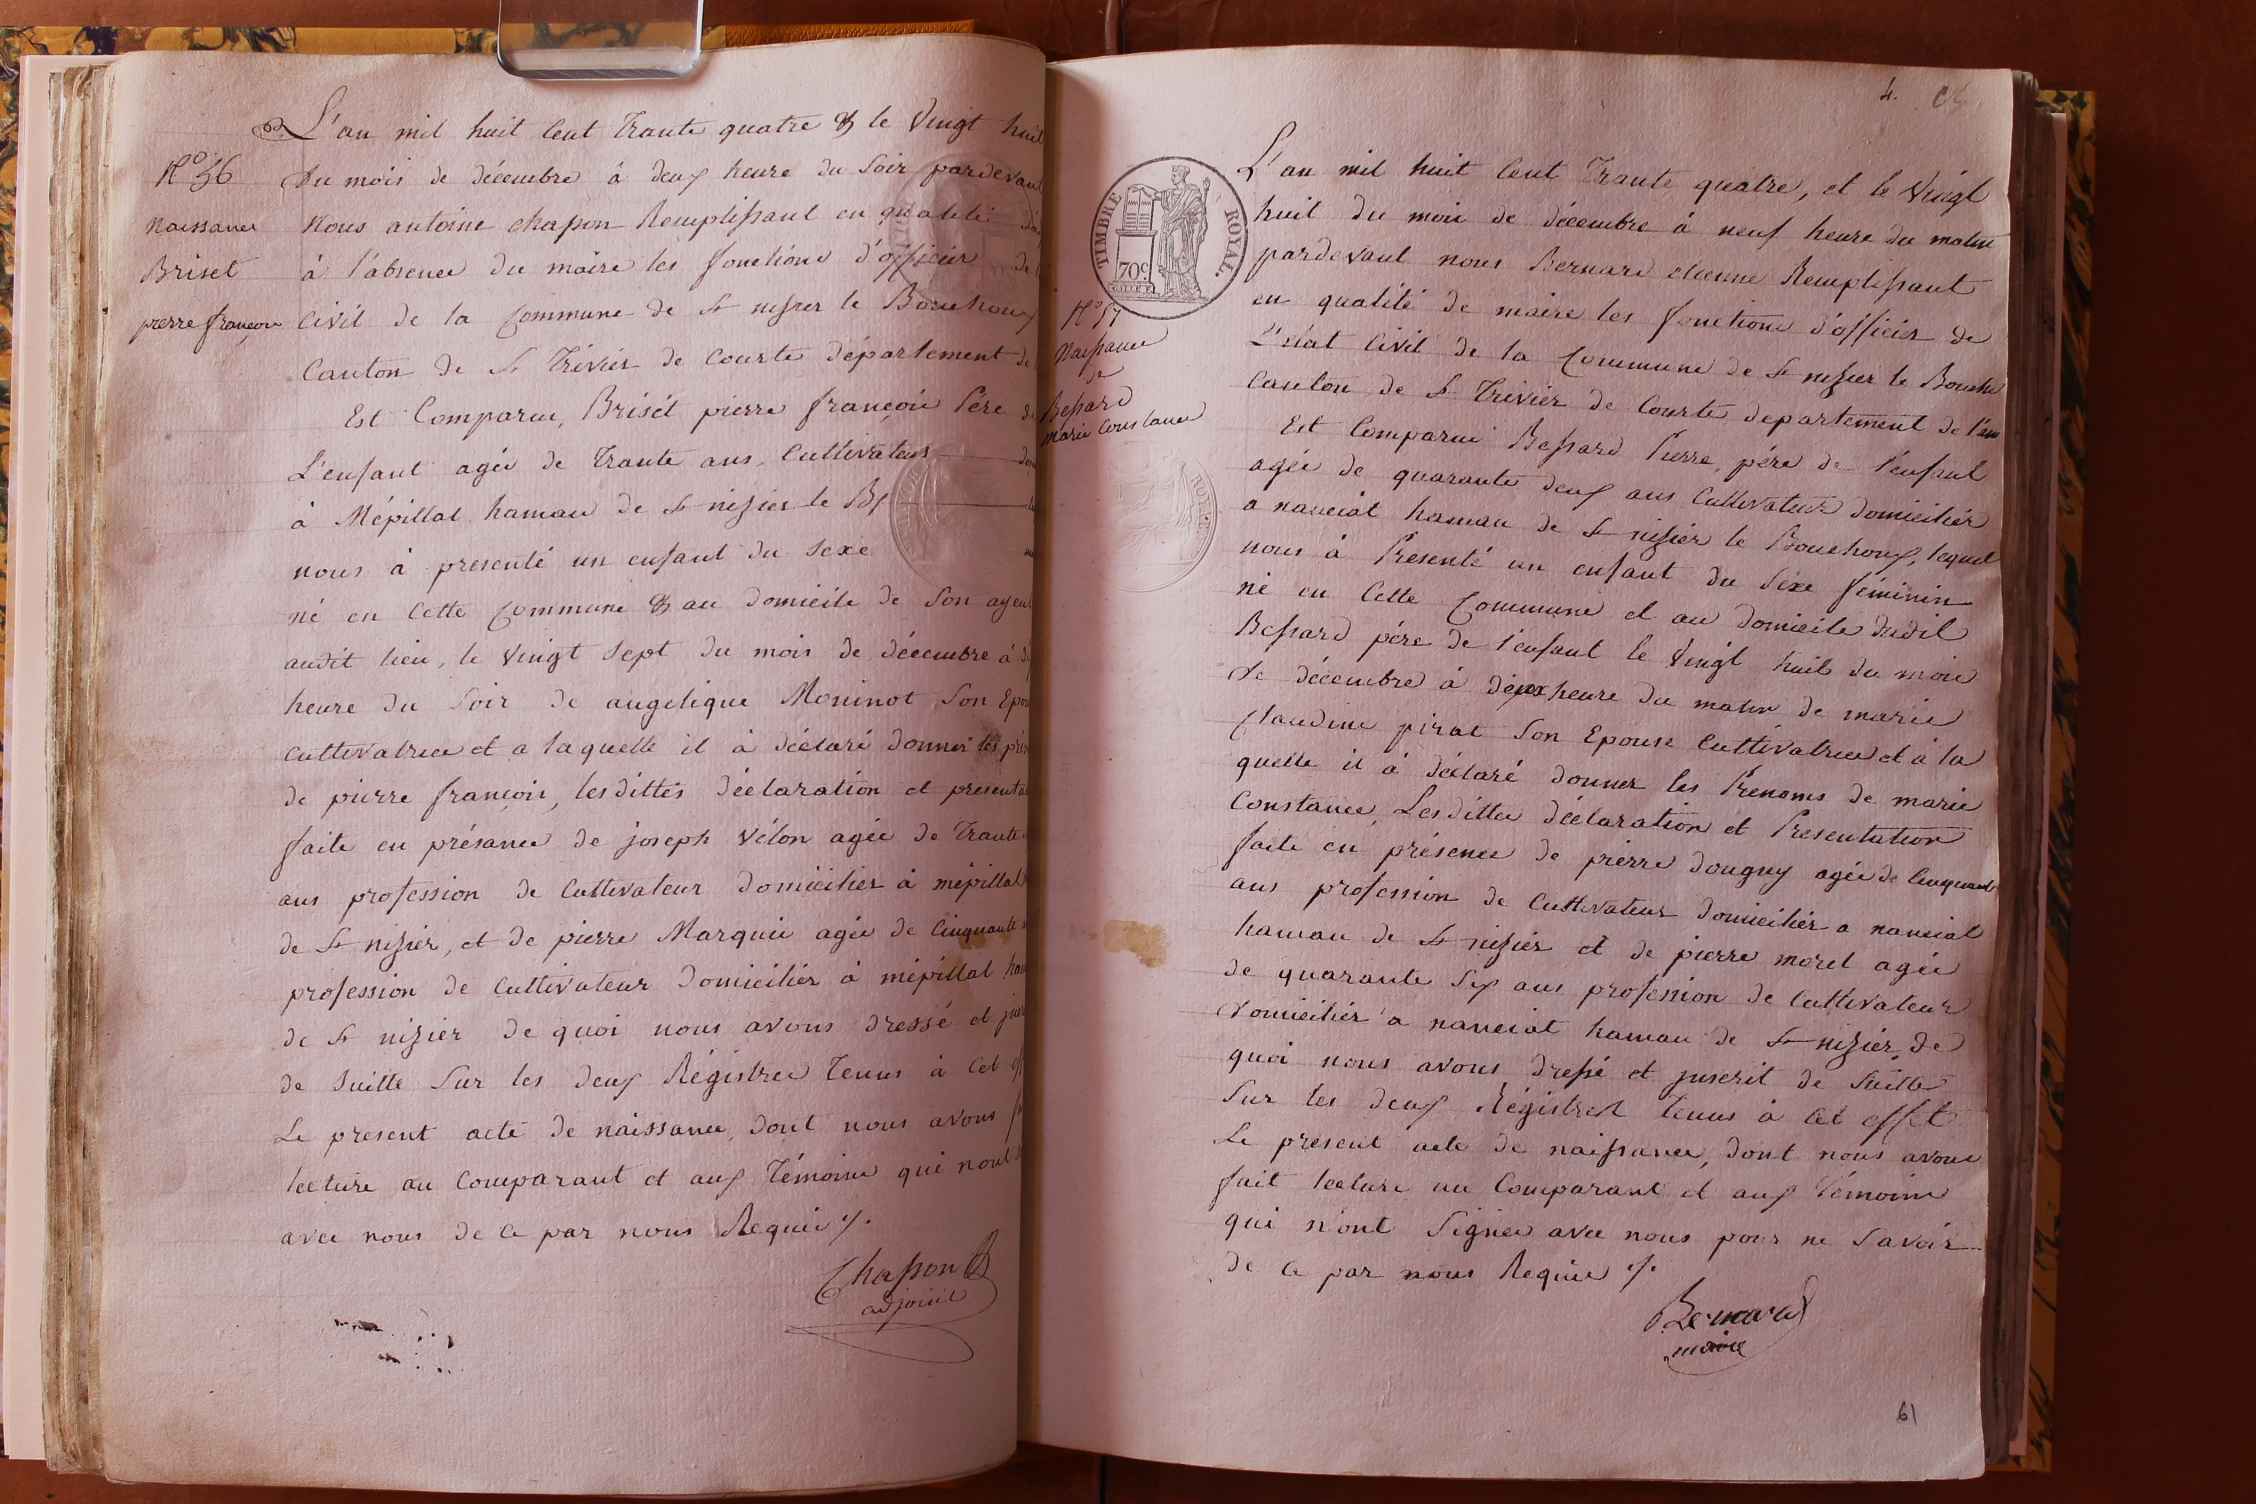 L'an mil huit Cent Trante quatre & le Vingt huit
N° 56
Du mois de décembre à deux heure du Soir pardevant
Naissance
Nous antoine chapon Remplissant en qualité
Briset
à l'absence du maire les fonctions d'officier de
pierre françois
Civil de la Commune de St nisier le Bouchoux
Canton de St Trivier de Courte département de
Est Comparu, Brisét pierre françois Pére de
L'enfant agée de Trante ans, Cultivateur
à Mépillat hamau de St nizier le Bx
nous à presenté un enfant du sexe
né en Cette Commune & au domicile de Son
audit lieu, le Vingt Sept du mois de décembre à
heure du Soir de angelique Moninot Son
Cultivatrice et a laquelle il à déclaré donner les
de pierre françois, les dittes déclaration et
faite en présance de joseph Vélon agée de Trante
ans profession de Cultivateur domicilier à mépillat
de St nizier, et de pierre Marquie agée de Cinquante
profession de Cultivateur domicilier à mépillat
de St nizier de quoi nous avons dressé et
de Suitte Sur les deux Régistres Tenus à Cet
Le present acte de naissance, dont nous avons
lecture au Comparant et aux Témoins qui nont
avec nous de ce par nous Requis ./.
Chapon
adjoint
4.
TIMBRE ROYAL.
70c
N° 57
Naissance
de
Bessard
Marie Constance
L'an mil huit Cent Trante quatre, et le Vingt
huit du mois de décembre à neuf heure du matin
pardevant nous Bernard etienne Remplissant
en qualité de maire les fonctions d'officier de
L'état Civil de la Commune de St nizier le Bouchu
Canton de St Trivier de Courte departement de l'ain
Est Comparu Bessard Pierre, pére de l'enfant
agée de quarante deux ans Cultivateur domicilier
a nanciat hamau de St nizier le Bouchoux, lequel
nous à Presenté un enfant du Séxe féminin
né en Cette Commune et au domicile dudit
Bessard pére de l'enfant le Vingt huit du mois
de décembre à deux heure du matin de marie
Claudine pirat Son Epouse Cultivatrice et à la
quelle il à déclaré donner les Prenoms de marie
Constance, Lesdittes déclaration et Presentation
faite en présence de pierre dougny agée de Cinquante
ans profession de Cultivateur domicilier a nanciat
hamau de St nizier et de pierre morel agée
de quarante Six ans profession de Cultivateur
domicilier a nanciat hamau de St nizier, de
quoi nous avons dressé et juscrit de Suitte
Sur les deux Régistres Tenus à Cet effet
Le présent acte de naissance, dont nous avons
fait lecture au Comparant et aux Témoins
qui n'ont Signée avec nous pour ne Savoir
de ce par nous Requis ./.
Bernard
maire
61